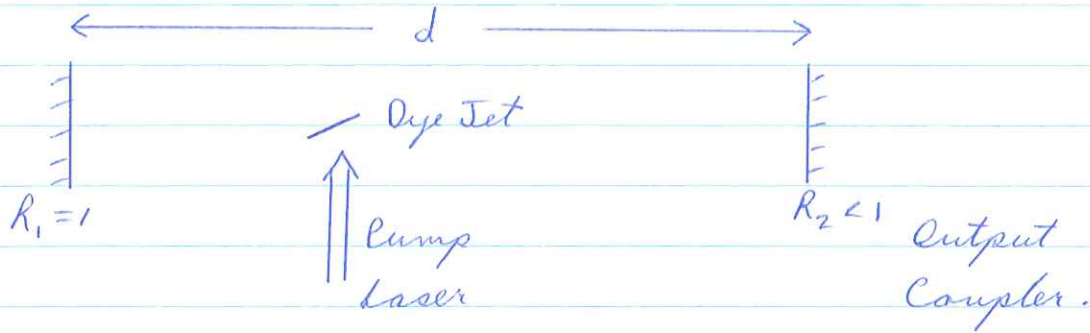 d
Dye Jet
R₁ = 1
R₂ < 1
Pump
Laser
Output
Coupler.